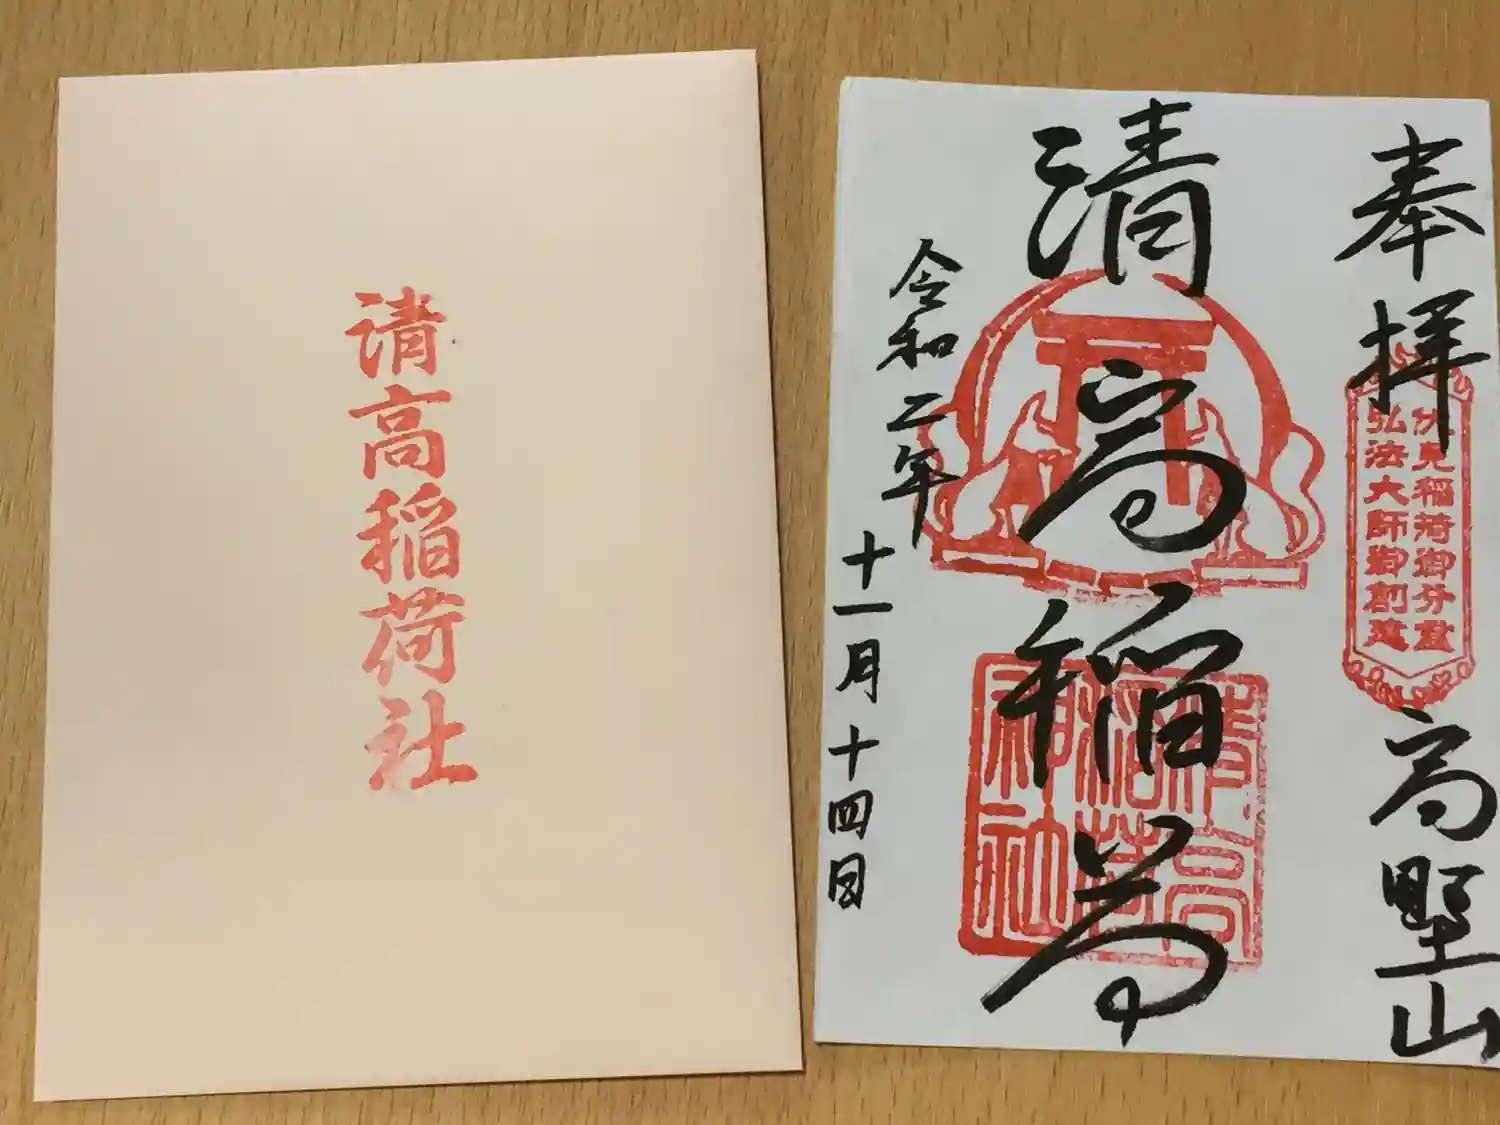 清高稲荷社
奉拝
伏見稲荷御分霊
弘法大師御創建
高野山
清高稲荷
清高
稲荷
神社
令和二年十一月十四日